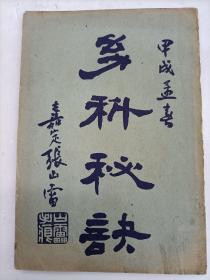 甲戌孟春
幼科秘訣
嘉定張山雷